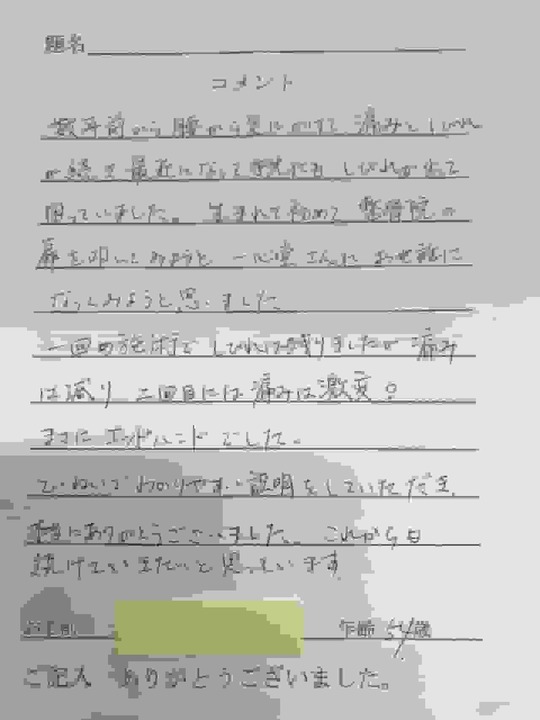 題名
コメント
数年前から腰から足にかけて 痛みとしびれ
が続き最近になって腕にも しびれが出て
困っていました。 生まれて初めて 整骨院の
扉を叩いてみようと 一心堂さんに お世話に
なってみようと思いました
一回の施術で しびれは残りましたが 痛み
は減り 二回目には痛みは激変。
まさに ゴッドハンド でした。
ていねいでわかりやすい説明をしていただき、
にありがとうございました。 これからも
続けていきたいと思っています
お名前 年齢 54歳
ご記入 ありがとうございました。